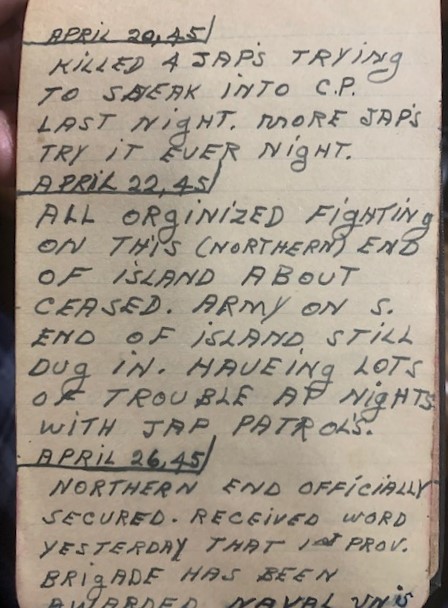 APRIL 20, 45
KILLED 4 JAP'S TRYING
TO SNEAK INTO C.P.
LAST NIGHT. MORE JAP'S
TRY IT EVER NIGHT.
APRIL 22, 45
ALL ORGINIZED FIGHTING
ON THIS (NORTHERN) END
OF ISLAND ABOUT
CEASED. ARMY ON S.
END OF ISLAND STILL
DUG IN. HAVEING LOTS
OF TROUBLE AT NIGHTS
WITH JAP PATROL'S.
APRIL 26, 45
NORTHERN END OFFICIALLY
SECURED. RECEIVED WORD
YESTERDAY THAT 1st PROV.
BRIGADE HAS BEEN
AWARDED NAVAL